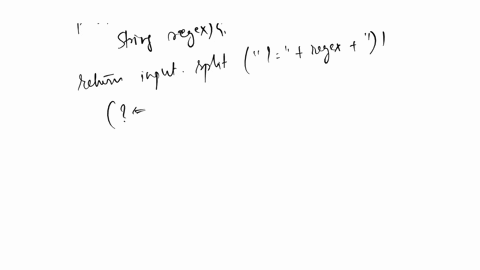 String regex) {
return input. split ("?=" + regex + ")|
(?<=